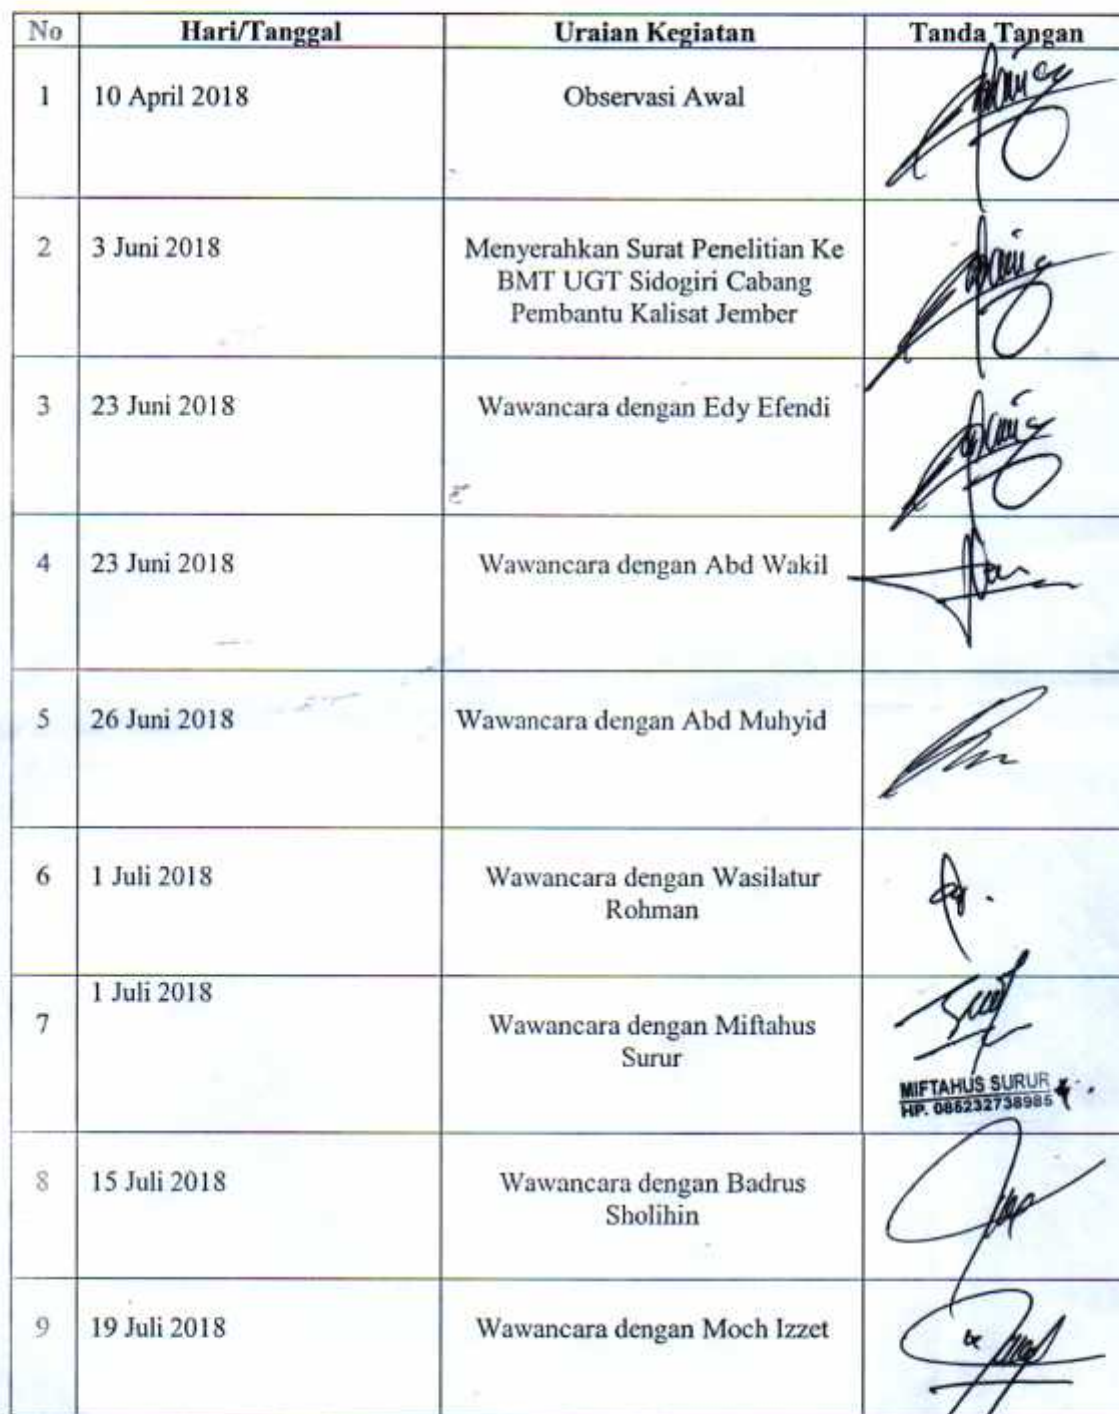 No Hari/Tanggal Uraian Kegiatan Tanda Tangan
1 10 April 2018 Observasi Awal
2 3 Juni 2018 Menyerahkan Surat Penelitian Ke
BMT UGT Sidogiri Cabang
Pembantu Kalisat Jember
3 23 Juni 2018 Wawancara dengan Edy Efendi
4 23 Juni 2018 Wawancara dengan Abd Wakil
5 26 Juni 2018 Wawancara dengan Abd Muhyid
6 1 Juli 2018 Wawancara dengan Wasilatur
Rohman
7 1 Juli 2018 Wawancara dengan Miftahus
Surur
MIFTAHUS SURUR
HP. 085232738985
8 15 Juli 2018 Wawancara dengan Badrus
Sholihin
9 19 Juli 2018 Wawancara dengan Moch Izzet